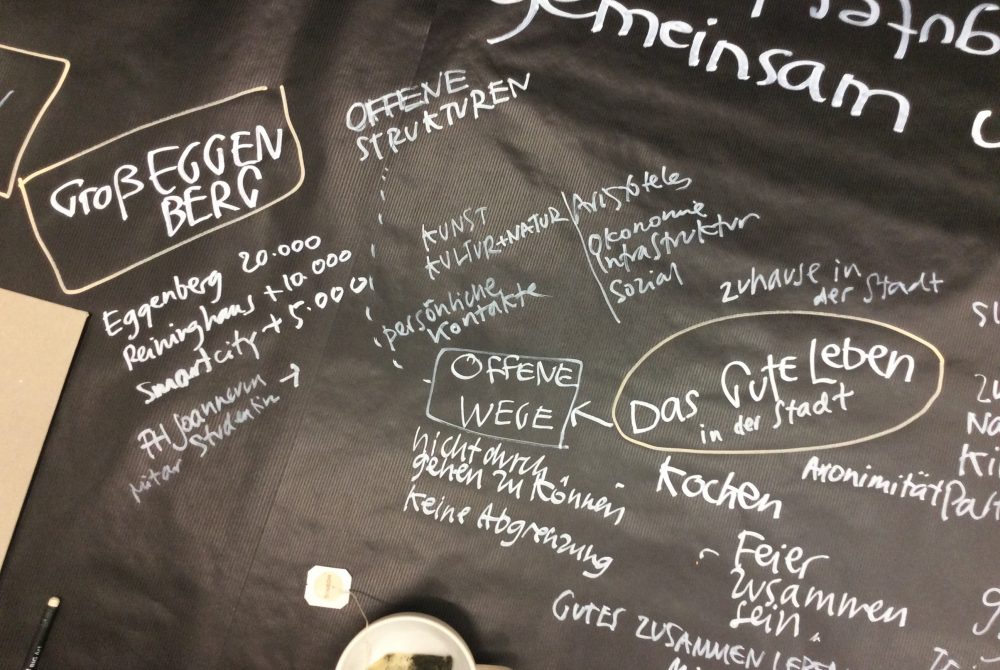 gutes
gemeinsam
OFFENE
STRUKTUREN
Groß EGGEN
BERG
KUNST
KULTUR+NATUR
Aristoteles
Ökonomie
Infrastruktur
Sozial
persönliche
Kontakte
Eggenberg 20.000
Reininghaus +10.000
Smartcity + 5.000
FH Joanneum →
zuhause in
der Stadt
OFFENE
WEGE
Das Gute Leben
in der Stadt
nicht durch
gehen zu können
keine Abgrenzung
Kochen
Anonimität
- Feier
zusammen
sein.
GUTES ZUSAMMEN LEBEN